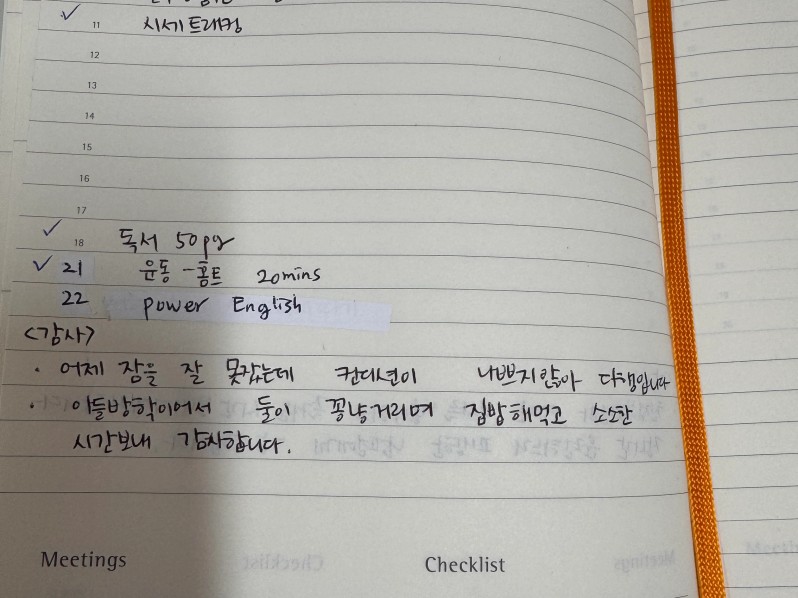 11 시세트래킹
12
13
14
15
16
17
18 독서 50pg
21 운동-홈트 20mins
22 power English
<감사>
· 어제 잠을 잘 못잤는데 컨디션이 나쁘지않아 다행입니다
· 아들방학이어서 둘이 꽁냥거리며 집밥해먹고 소소한
시간보내 감사합니다.
Meetings Checklist